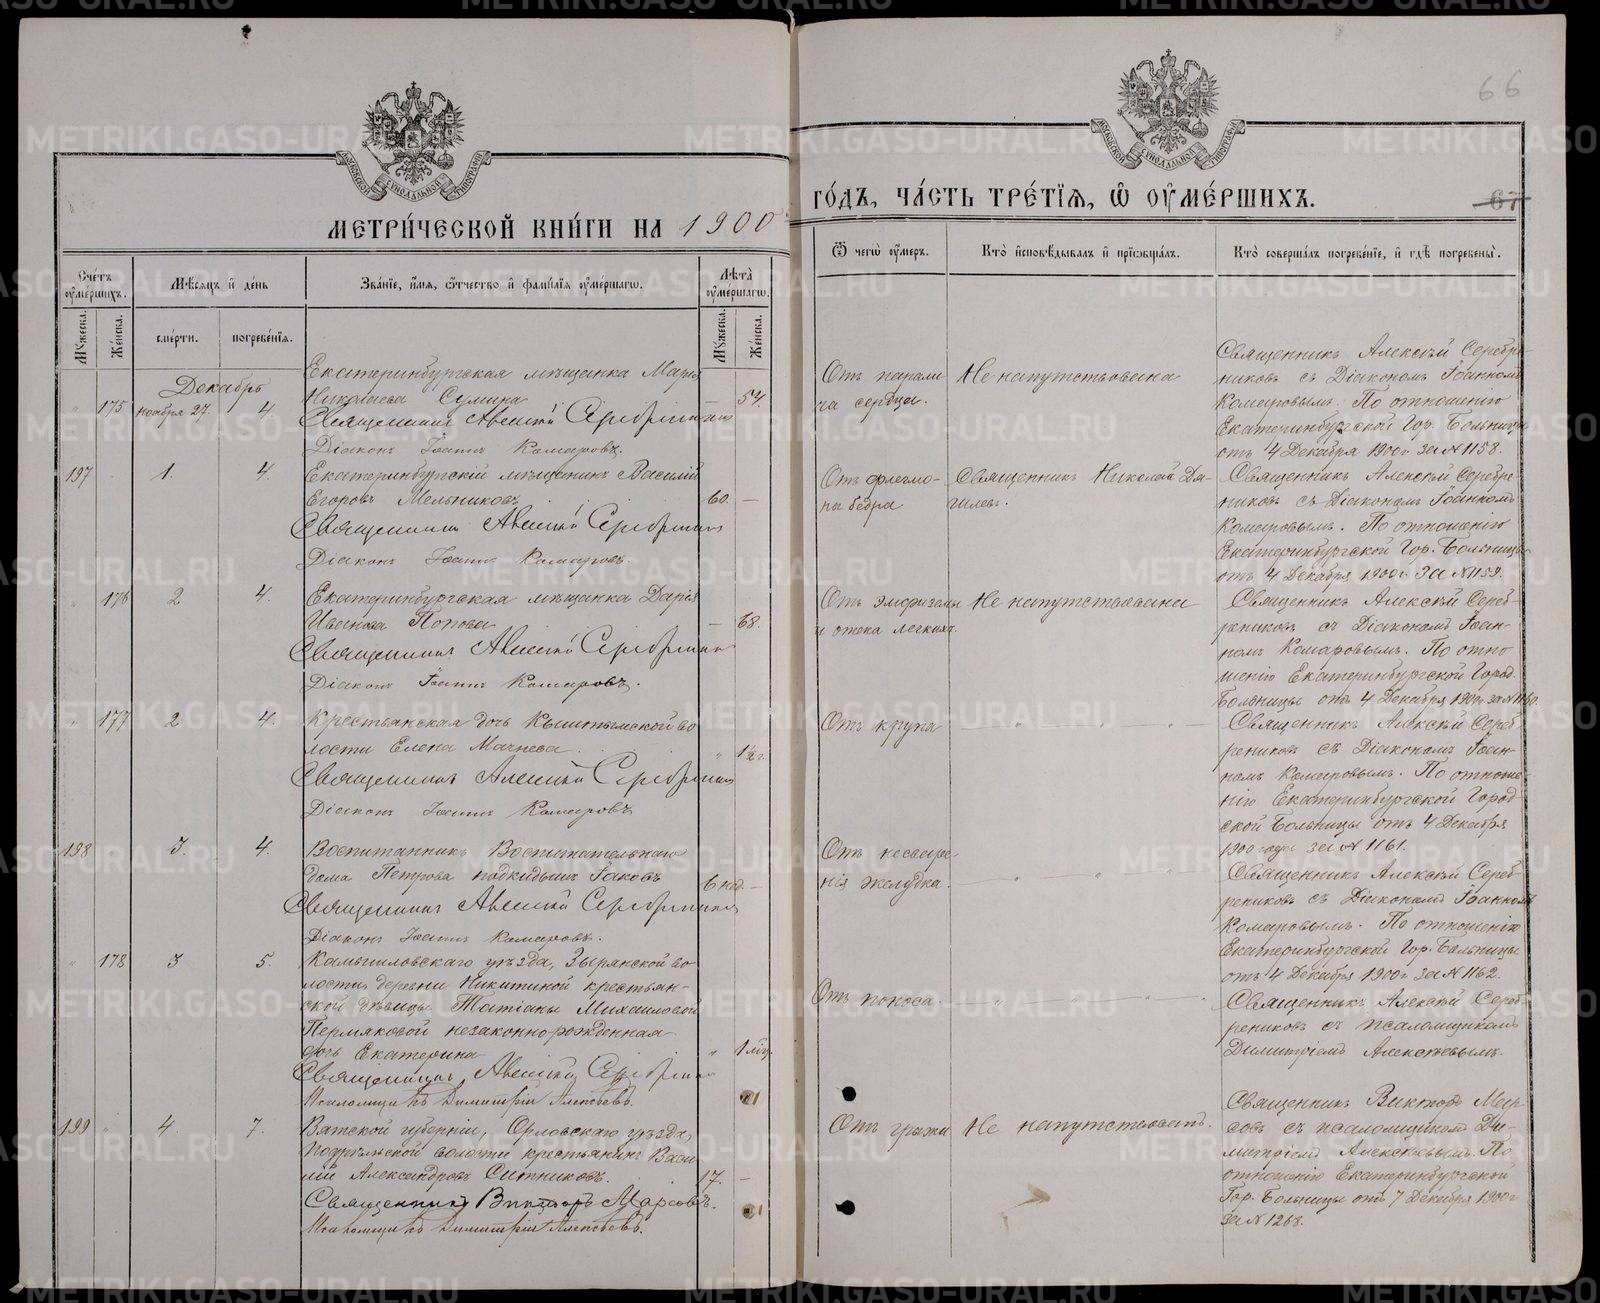 66
67
МЕТРИ́ЧЕСКОЙ КНИ́ГИ НА 1900
ГО́ДЪ, ЧА́СТЬ ТРЕ́ТІЯ, Ѿ ОУМЕ́РШИХЪ.
МОСКОВСКОЙ СУНОДАЛЬНОЙ ТИПОГРАФІИ
МОСКОВСКОЙ СУНОДАЛЬНОЙ ТИПОГРАФІИ
Счетъ оумершихъ.
Мужеска.
Женска.
Мѣсяцъ и день
смерти.
погребенія.
Званіе, имя, отчество и фамилія оумершаго.
Лѣта оумершаго.
Мужеска.
Женска.
Ѿ чего оумеръ.
Кто исповѣдывалъ и пріобщалъ.
Кто совершалъ погребеніе, и гдѣ погребены.
Декабрь
" 175 ноября 27. 4.
Екатеринбургская мѣщанка Марія
Николаева Сумина — 54.
Священникъ Алексій Серебрениковъ
Діаконъ Іоаннъ Комаровъ.
Отъ парали
ча сердца.
Не напутствована
Священникъ Алексій Серебре-
никовъ съ Діакономъ Іоанномъ
Комаровымъ. По отношенію
Екатеринбургской Гор. Больницы
отъ 4 Декабря 1900 г. за № 1158.
197 1. 4.
Екатеринбургскій мѣщанинъ Василій
Егоровъ Мельниковъ 60. —
Священникъ Алексій Серебрениковъ
Діаконъ Іоаннъ Комаровъ.
Отъ флегмо-
ны бедра
Священникъ Николай Дя-
гилевъ.
Священникъ Алексій Серебре-
никовъ съ Діакономъ Іоанномъ
Комаровымъ. По отношенію
Екатеринбургской Гор. Больницы
отъ 4 Декабря 1900 г. за № 1159.
" 176 2 4.
Екатеринбургская мѣщанка Дарія
Иванова Попова — 68.
Священникъ Алексій Серебрениковъ
Діаконъ Іоаннъ Комаровъ.
Отъ эмфиземы
и отека легкихъ.
Не напутствована
Священникъ Алексій Сереб-
рениковъ съ Діакономъ Іоан-
номъ Комаровымъ. По отно
шенію Екатеринбургской Город.
Больницы отъ 4 Декабря 1900 г. за № 1160.
" 177 2 4.
Крестьянская дочь Кыштымской во
лости Елена Мачнева " 1½ г.
Священникъ Алексій Серебрениковъ
Діаконъ Іоаннъ Комаровъ
Отъ крупа
Священникъ Алексій Сереб
рениковъ съ Діакономъ Іоан-
номъ Комаровымъ. По отноше-
нію Екатеринбургской Город-
ской Больницы отъ 4 Декабря
1900 года за № 1161.
198 3. 4.
Воспитанникъ Воспитательнаго
дома Петрова подкидышъ Іаковъ 6 нед. —
Священникъ Алексій Серебрениковъ
Діаконъ Іоаннъ Комаровъ.
Отъ несваре-
нія желудка.
Священникъ Алексій Сереб
рениковъ съ Діакономъ Іоанномъ
Комаровымъ. По отношенію
Екатеринбургской Гор. Больницы
отъ 4 Декабря 1900 г. за № 1162.
" 178 3 5.
Камышловскаго уѣзда, Зырянской во-
лости деревни Никитиной крестьян-
ской дѣвицы Татіаны Михаиловой
Пермяковой незаконнорожденная
дочь Екатерина " 1 мѣс.
Священникъ Алексій Серебрениковъ
Псаломщикъ Димитрій Алексѣевъ.
Отъ поноса.
Священникъ Алексій Сереб-
рениковъ съ псаломщикомъ
Димитріемъ Алексѣевымъ.
199 " 4. 7.
Вятской губерніи, Орловскаго уѣзда,
волости крестьянинъ Васи
лій Александровъ Ситниковъ. 17. —
Священникъ Викторъ Марсовъ.
Псаломщикъ Димитрій Алексѣевъ.
Отъ грыжи
Не напутствованъ.
Священникъ Викторъ Мар-
совъ съ псаломщикомъ Ди-
митріемъ Алексѣевымъ. По
отношенію Екатеринбургской
Гор. Больницы отъ 7 Декабря 1900 г.
за № 1268.
METRIKI.GASO-URAL.RU